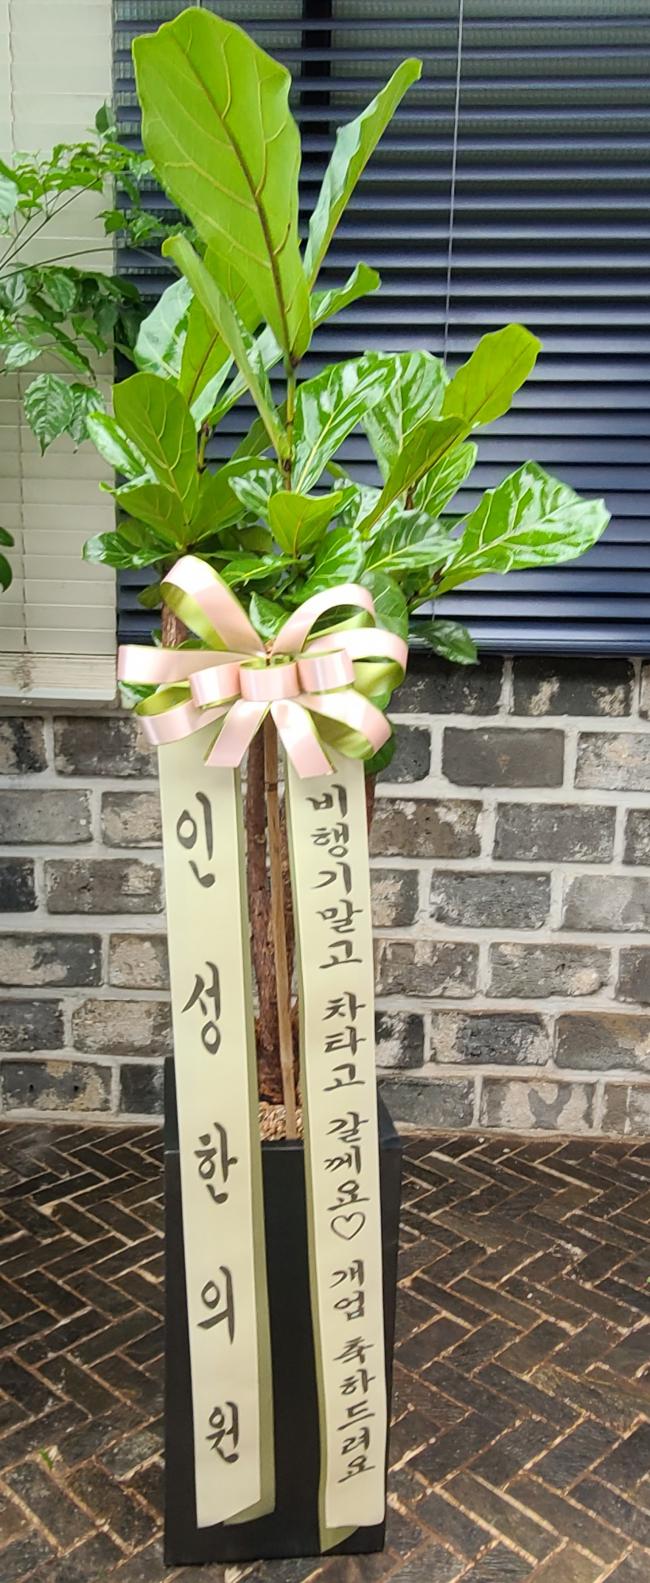 인성한의원
비행기말고 차타고 갈께요♡ 개업 축하드려요